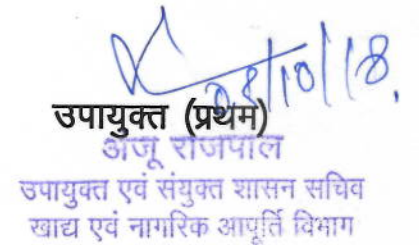 08/10/18.
उपायुक्त (प्रथम)
अंजू राजपाल
उपायुक्त एवं संयुक्त शासन सचिव
खाद्य एवं नागरिक आपूर्ति विभाग